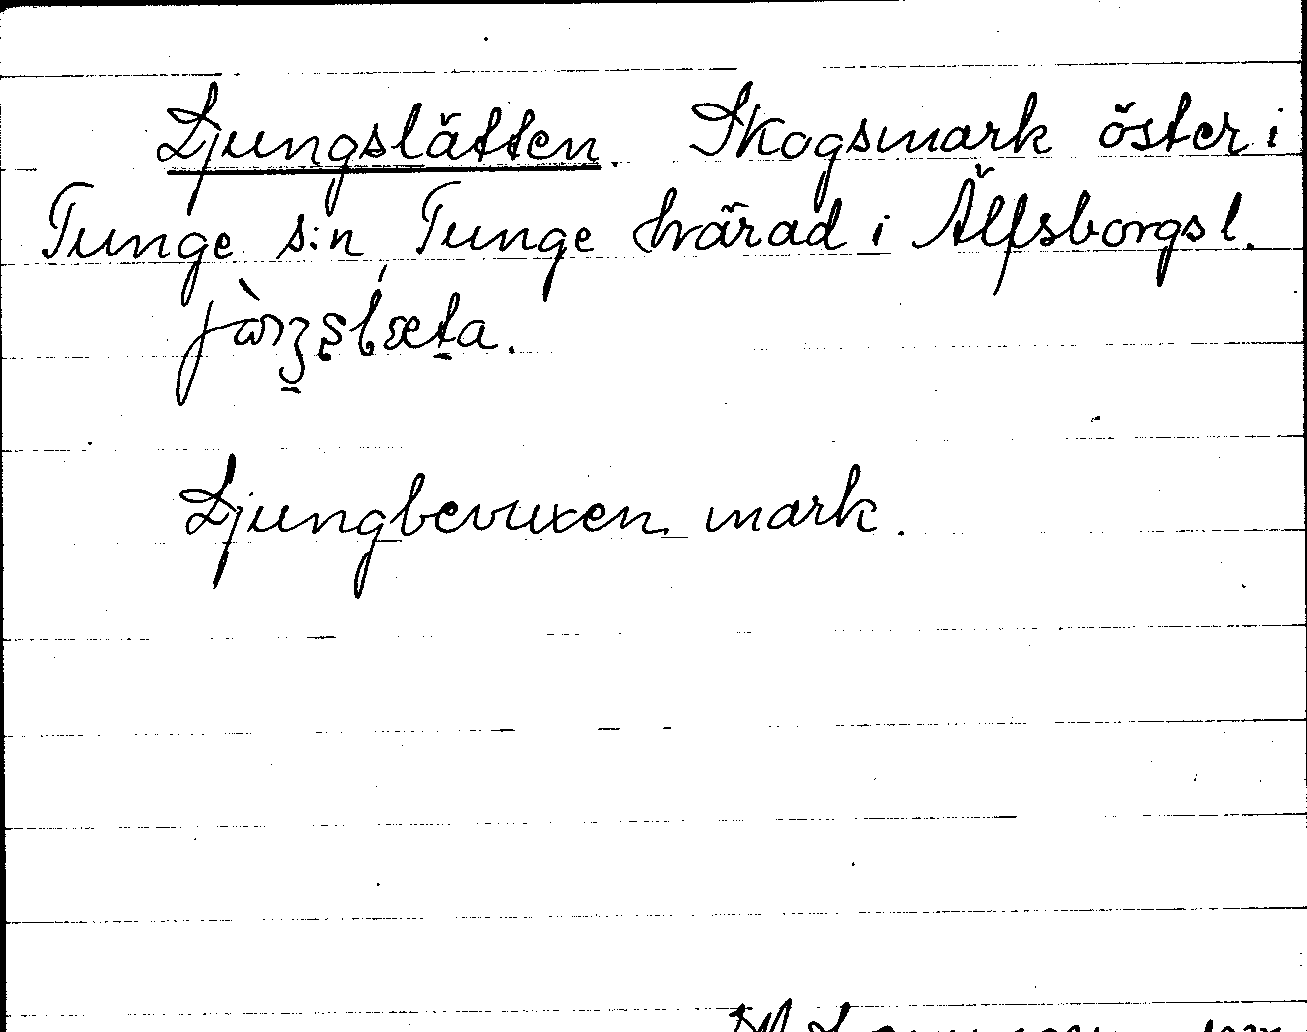 Ljungslätten. Skogsmark öster i
Tunge s:n, Tunge härad i Älfsborgs l.
Ljungbevuxen mark.